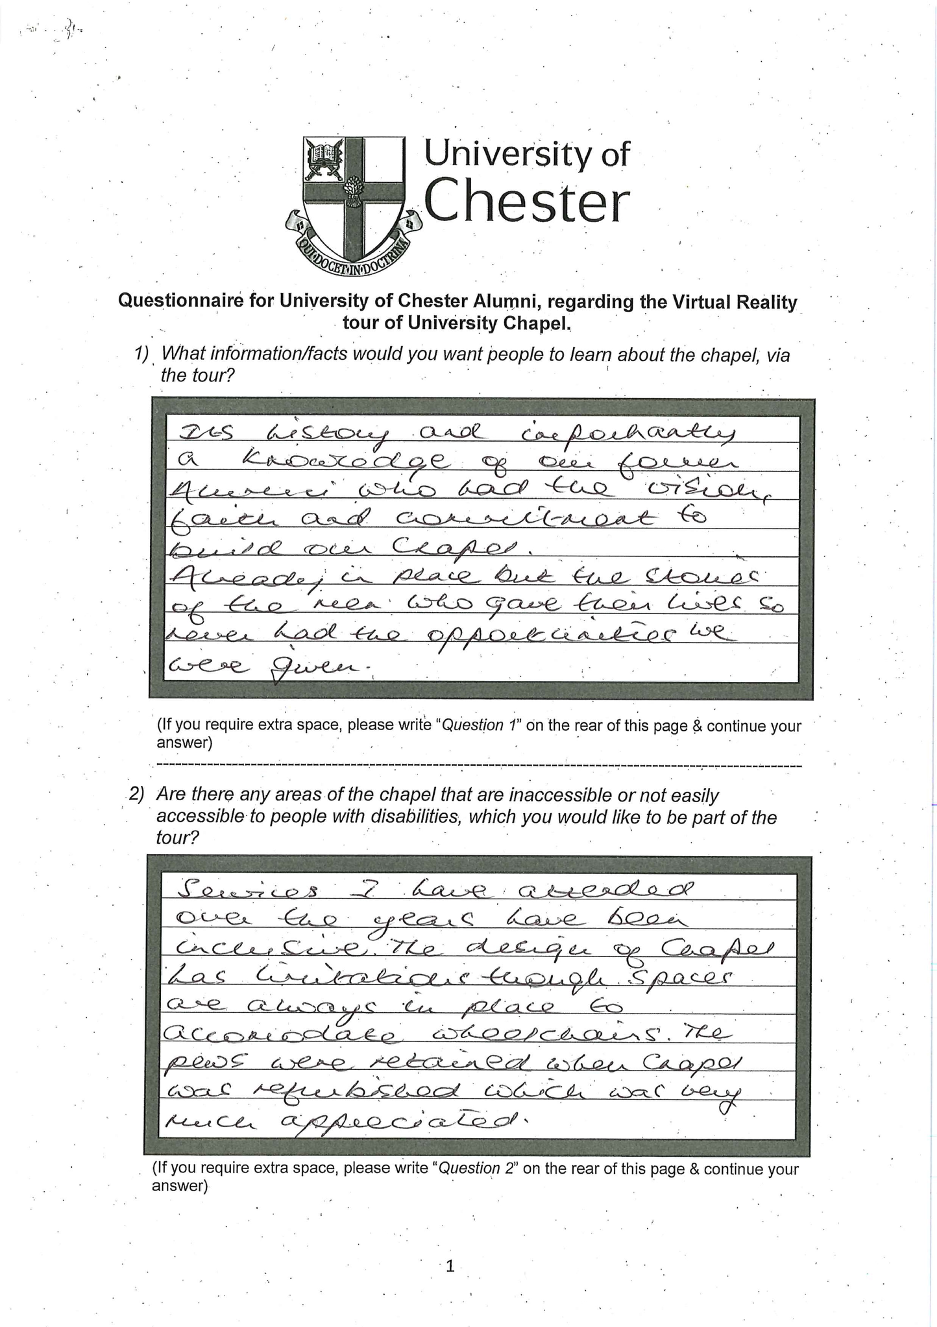 University of
Chester
QUI·DOCET·IN·DOCTRINA
Questionnaire for University of Chester Alumni, regarding the Virtual Reality
tour of University Chapel.
1) What information/facts would you want people to learn about the chapel, via
the tour?
Its history and importantly
a knowledge of our former
Alumni who had the vision,
faith and commitment to
build our Chapel.
Already in place but the stories
of the men who gave their lives so
never had the opportunities we
were given.
(If you require extra space, please write “Question 1” on the rear of this page & continue your
answer)
2) Are there any areas of the chapel that are inaccessible or not easily
accessible to people with disabilities, which you would like to be part of the
tour?
Services I have attended
over the years have been
inclusive. The design of Chapel
has limitations though spaces
are always in place to
accomodate wheelchairs. The
pews were retained when Chapel
was refurbished which was very
much appreciated.
(If you require extra space, please write “Question 2” on the rear of this page & continue your
answer)
1